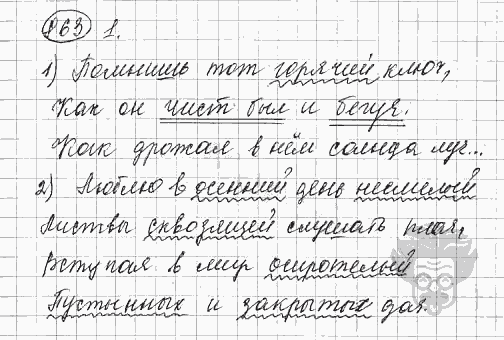 863 1.
1) Помнишь тот горячий ключ,
Как он чист был и бегуч.
Как дрожал в нём солнца луч...
2) Люблю в осенний день несмелый
Листвы сквозящей слушать плач,
Вступая в мир осиротелый
Пустынных и закрытых дач.